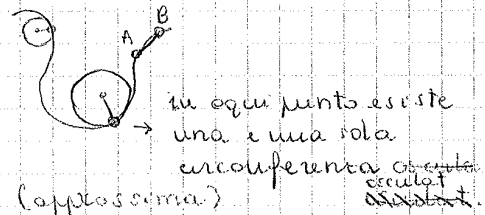 A B
in ogni punto esiste
una e una sola
circonferenza oscula
osculat.
(approssima)